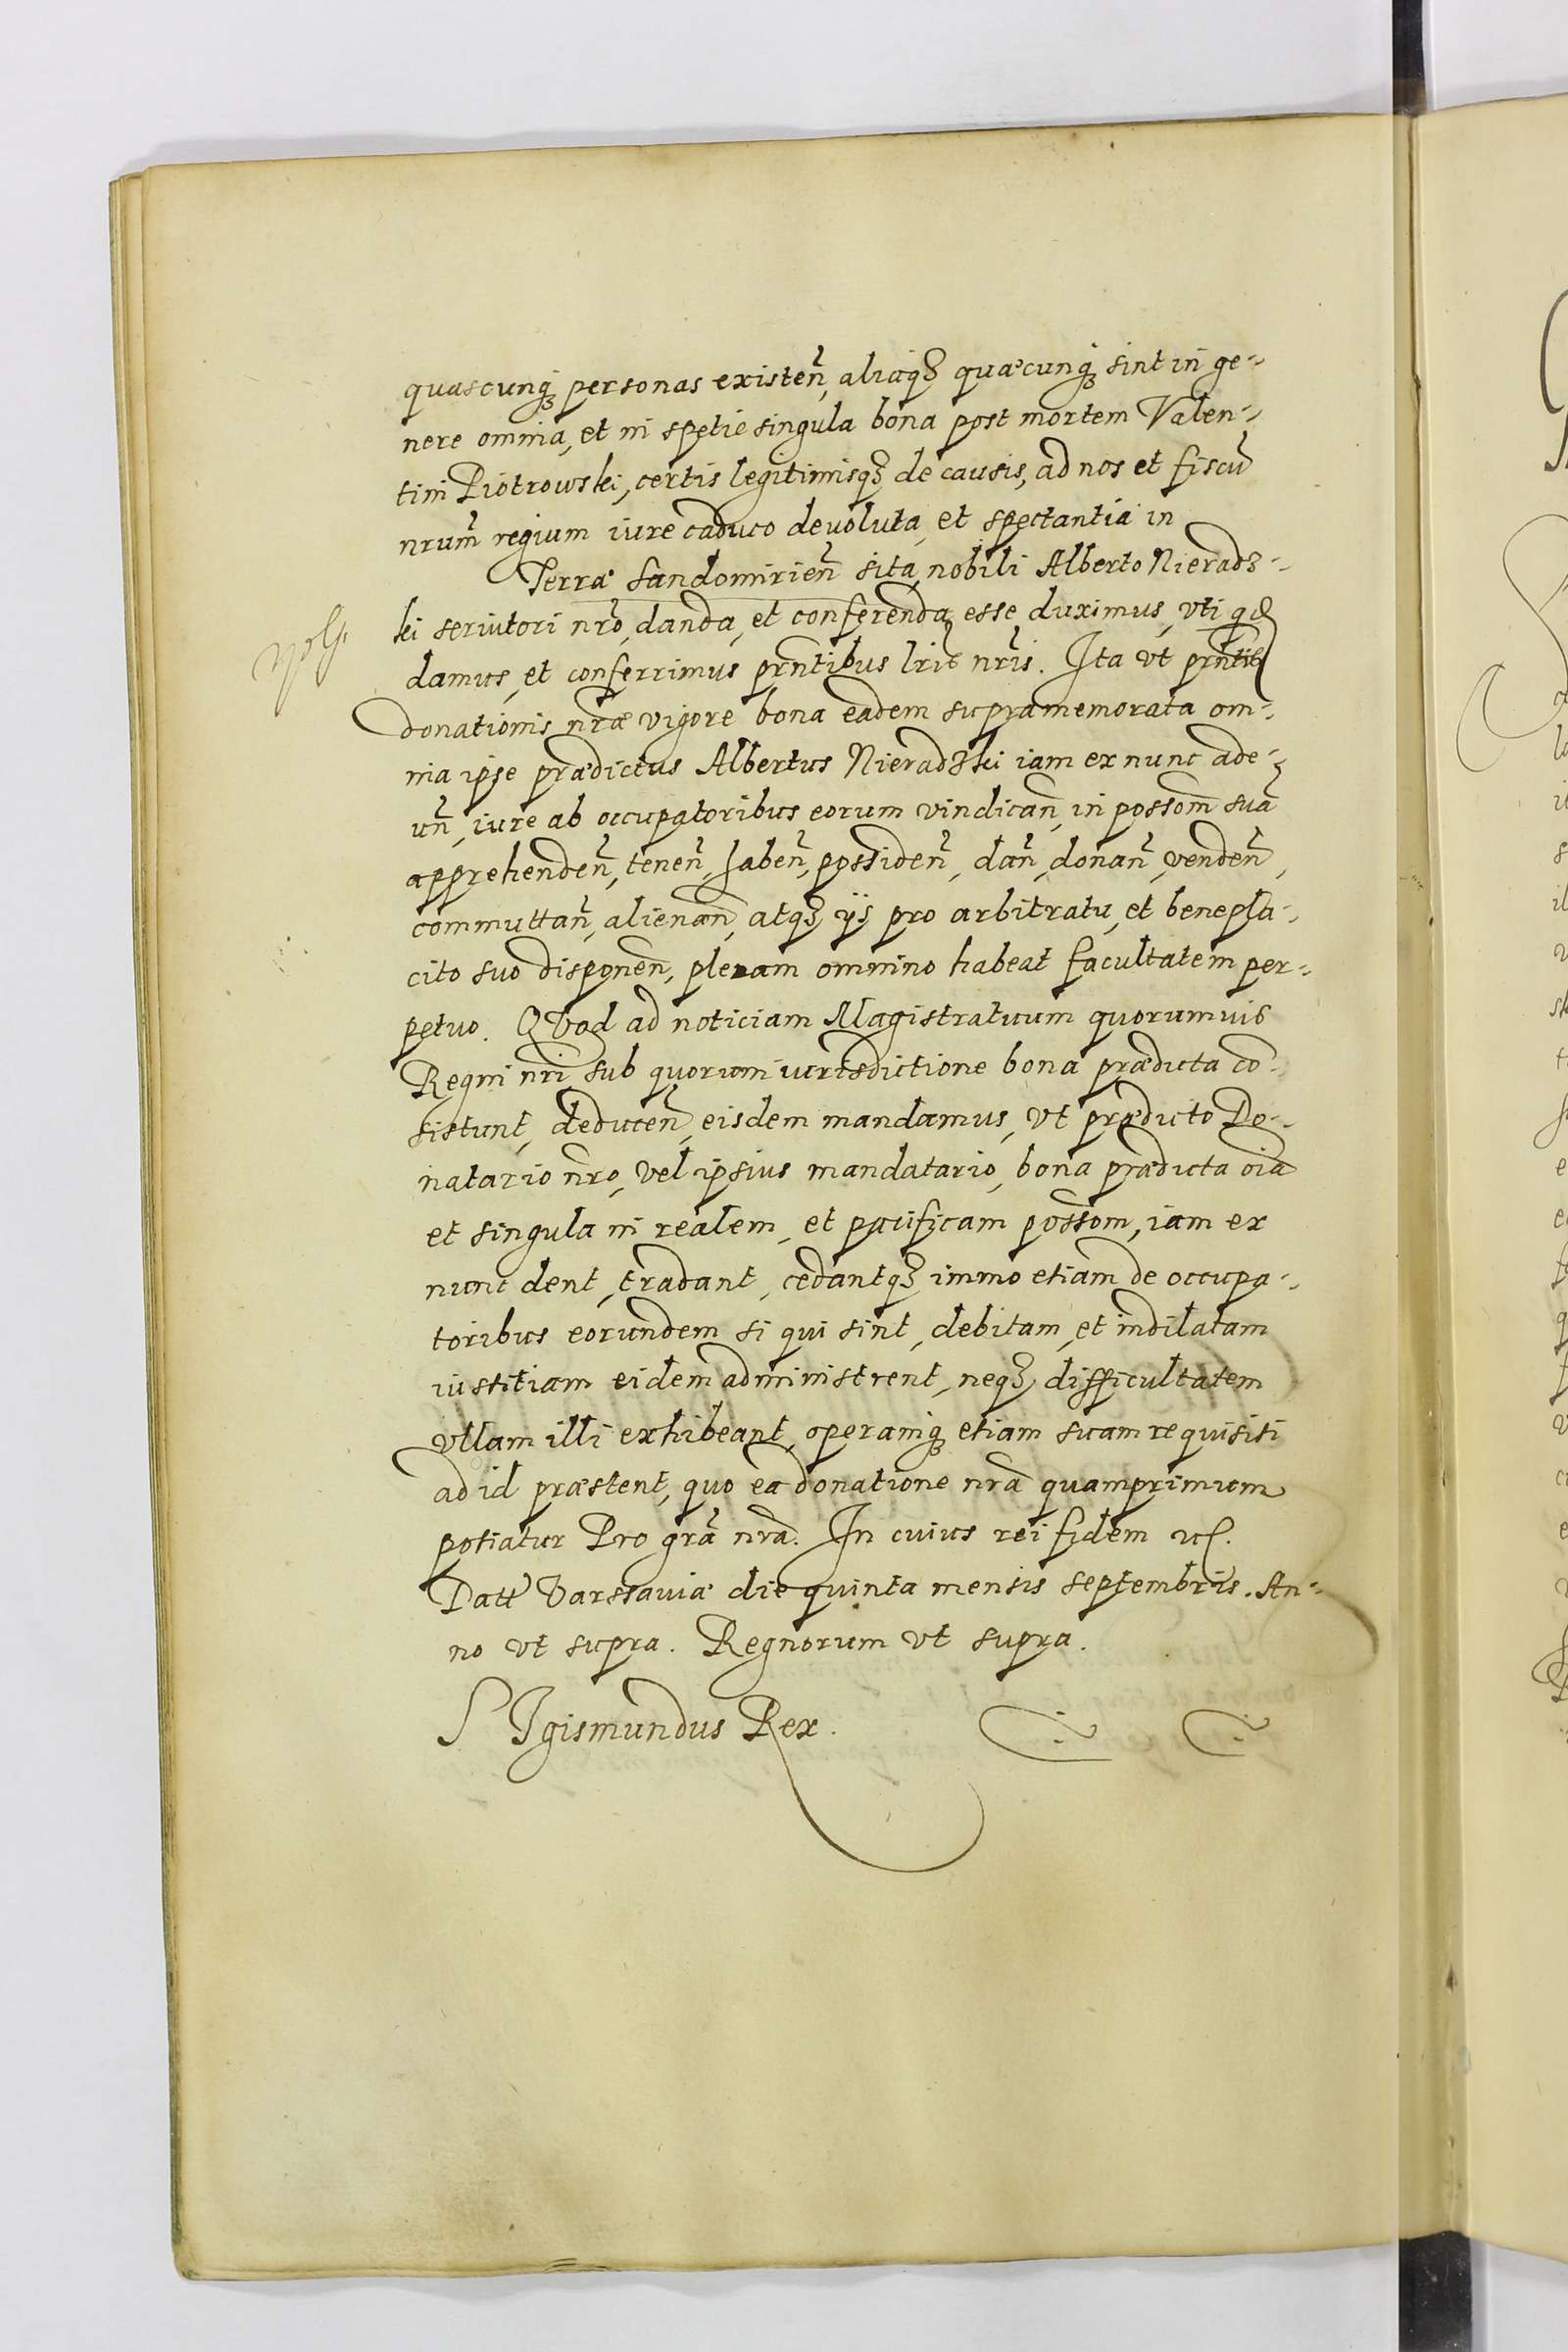 quascunq personas existen, aliaqȝ quæcunq sint in ge-
nere omnia, et in spetie singula bona post mortem Valen-
tini Piotrowski, certis legitimisqȝ de causis, ad nos et fiscū
nrum regium iure caduco deuoluta, et spectantia in
Terra Sandomirien sita, nobili Alberto Nieradz-
ki seruitori nro, danda, et conferenda esse duximus, vti qd
damus, et conferrimus prntibus lris nris. Ita vt prntis
donationis nræ vigore bona eadem supramemorata om-
nia ipse prædictus Albertus Nieradzki iam ex nunc ade-
un, iure ab occupatoribus eorum vindican, in possom suā
apprehenden, tenen, haben, possiden, dan, donan, venden,
commuttan, alienan, atqȝ ijs pro arbitratu, et benepla-
cito suo disponen, plenam omnino habeat facultatem per-
petuo. Qvod ad noticiam Magistratuum quorumuis
Regni nri sub quorum iurisdictione bona prædicta cō-
sistunt, deducen, eisdem mandamus, vt prædicto Do-
natario nro, vel ipsius mandatario, bona prædicta oīa
et singula in realem, et pacificam possom, iam ex
nunc dent, tradant, cedantqȝ immo etiam de occupa-
toribus eorundem si qui sint, debitam, et indilatam
iustitiam eidem administrent, neqȝ difficultatem
vllam illi exhibeant, operamq etiam suam requisiti
ad id præstent, quo ea donatione nrā quamprimum
potiatur Pro grā nrā. In cuius rei fidem
Datt Varssaviæ die quinta mensis septembris. An-
no vt supra. Regnorum vt supra.
SIgismundus Rex.